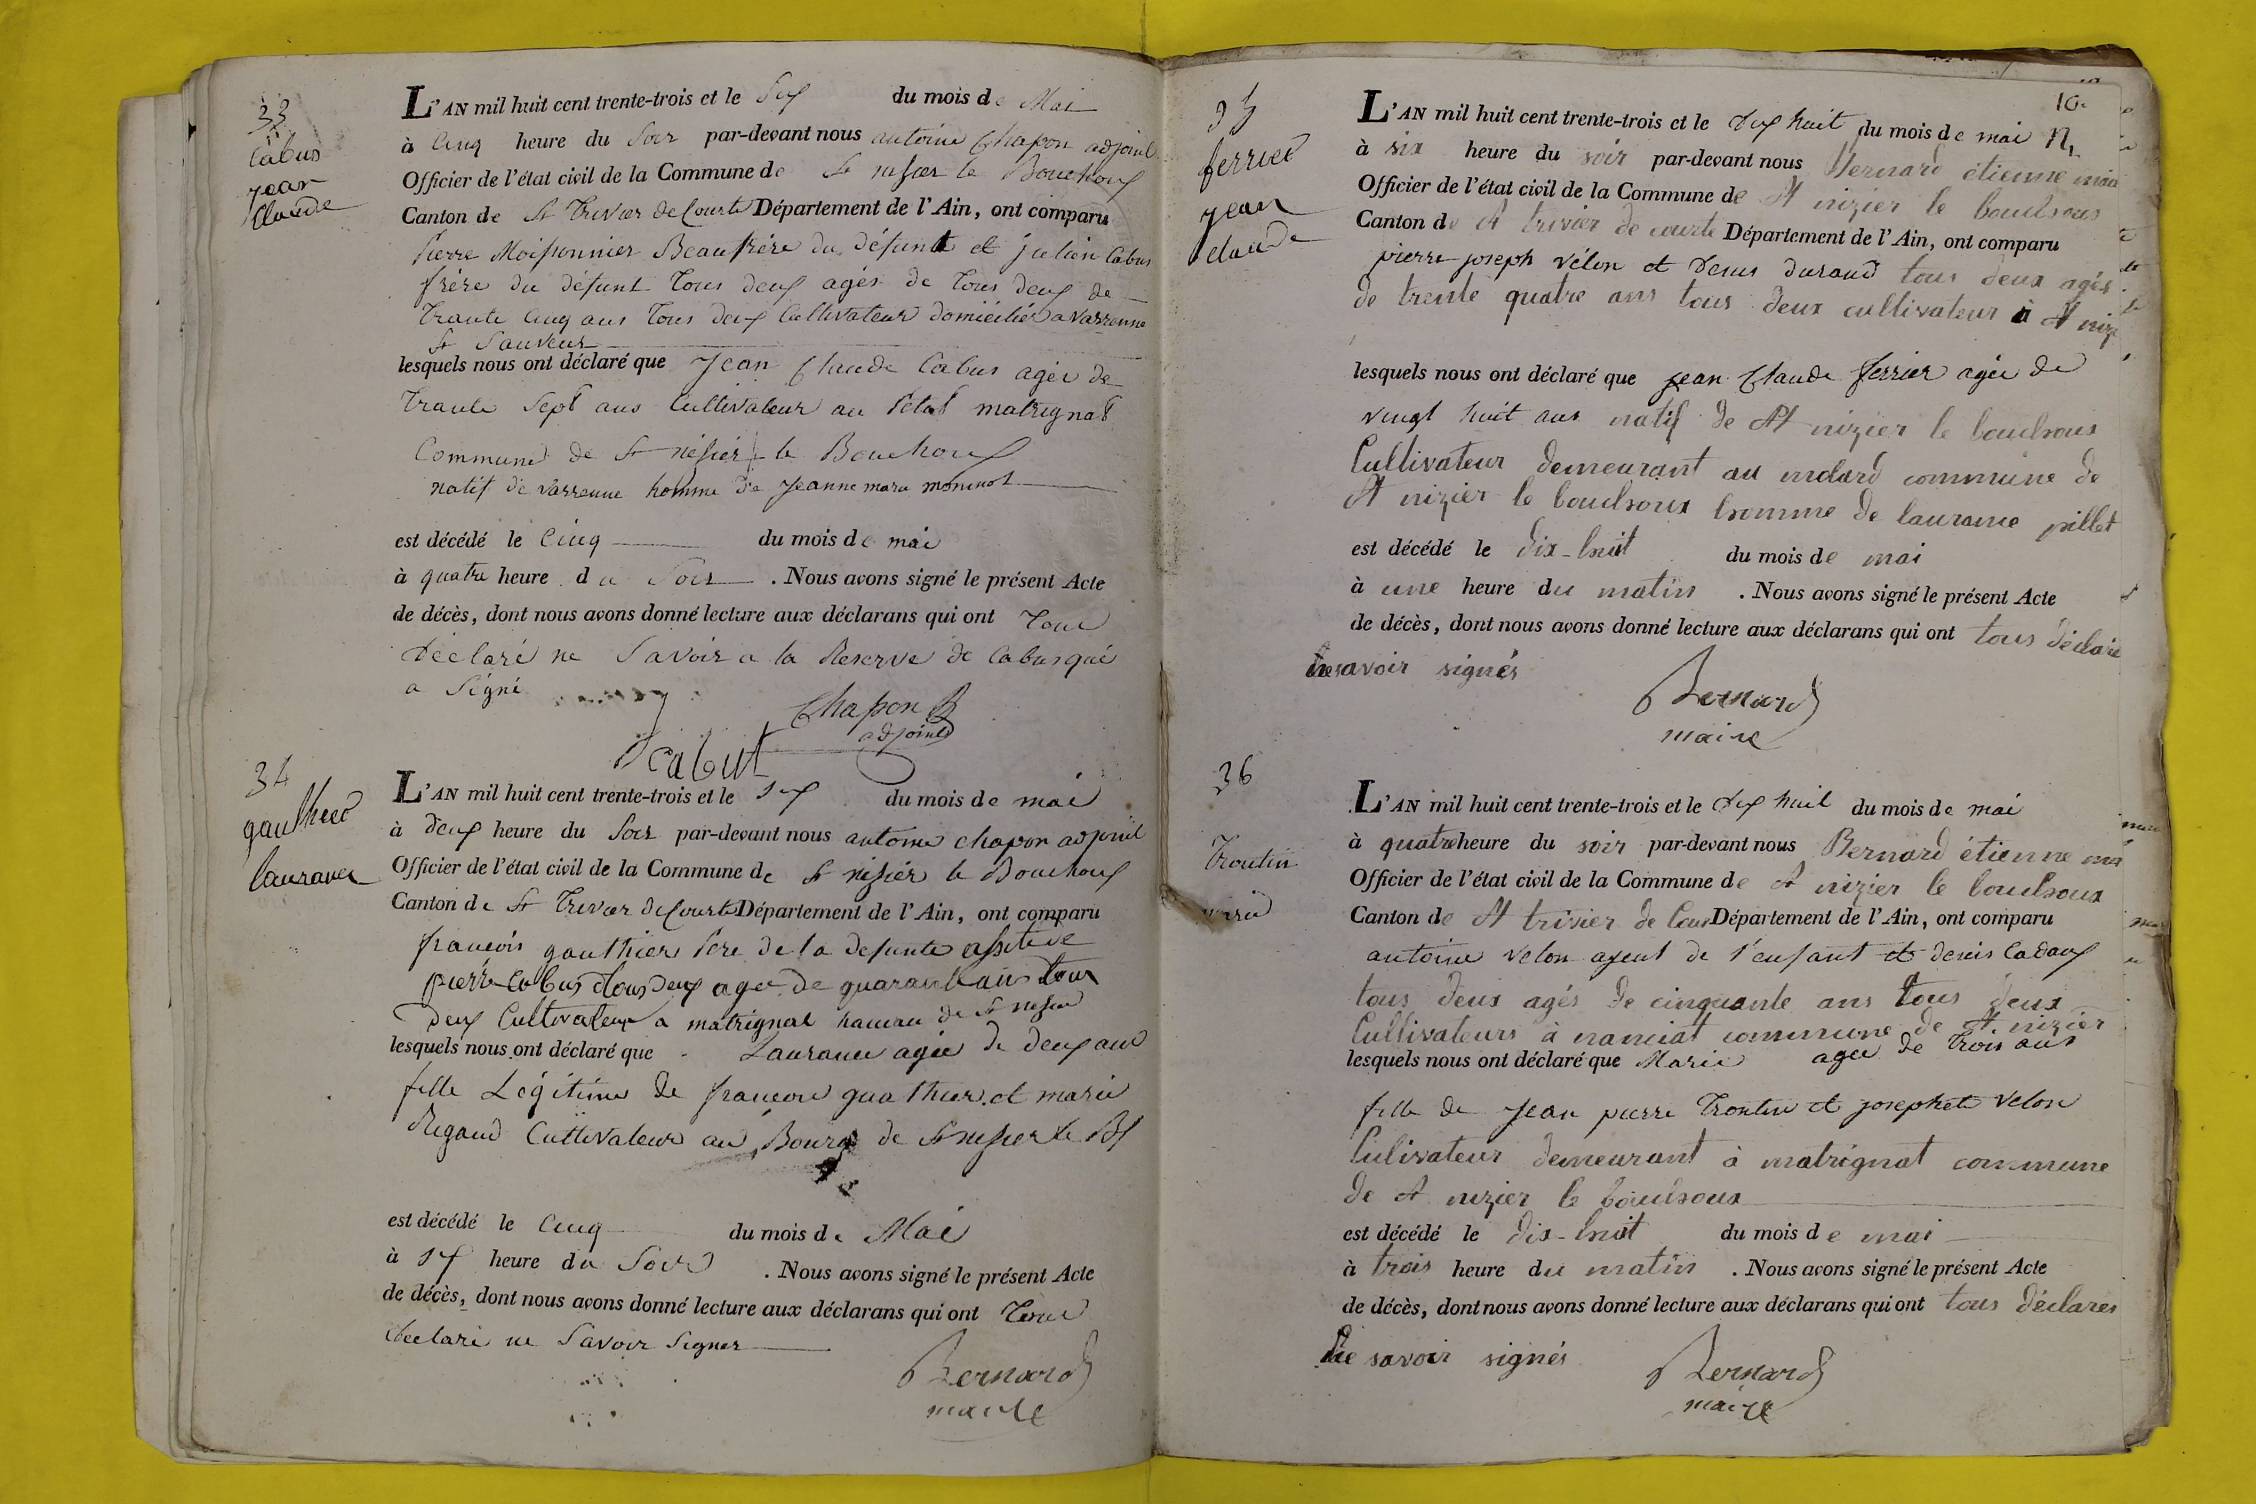 33
Cabus
jean
Claude
L'AN mil huit cent trente-trois et le Six du mois de Mai
à Cinq heure du Soir par-devant nous antoine Chapon adjoint
Officier de l'état civil de la Commune de St nisier le Bouchoux
Canton de St Trivier de Courte Département de l'Ain, ont comparu
Pierre Moissonnier Beaufrére du défunt et julien Cabus
frére du défunt Tous deux agés de Tous deux de
Traente Cinq ans Tous deux Cultivateur domicilier a Varrenne
St Sauveur
lesquels nous ont déclaré que Jean Claude Cabus agée de
Traente Sept ans Cultivateur au matrignat
Commune de St nisier le Bouchoux
natif de Varrenne homme de Jeanne marie moninot
est décédé le Cinq du mois de mai
à quatre heure du Soir . Nous avons signé le présent Acte
de décès, dont nous avons donné lecture aux déclarans qui ont Tous
Déclaré ne Savoir a la Reserve de Cabus qui
a Signé
Chapon
adjoint
J cabut
34
gauthier
laurance
L'AN mil huit cent trente-trois et le six du mois de mai
à deux heure du Soir par-devant nous antoine chapon adjoint
Officier de l'état civil de la Commune de St nisier le Bouchoux
Canton de St Trivier de Courte Département de l'Ain, ont comparu
francois gauthier Pere de la defunte
pierre Cabus Tous deux agee de quarante ans Tous
deux Cultivateur a matrignat hameau de St nisier
lesquels nous ont déclaré que Laurance agée de deux ans
fille Légitime de francois gauthier et marie
Rigaud Cultivateur au Bourg de St nisier le Bx
est décédé le Cinq du mois de Mai
à six heure du Soir . Nous avons signé le présent Acte
de décès, dont nous avons donné lecture aux déclarans qui ont Tous
declaré ne Savoir Signer
Bernard
maire
10.
35
ferrier
jean
claude
L'AN mil huit cent trente-trois et le dix huit du mois de mai
à six heure du soir par-devant nous Bernard étienne
Officier de l'état civil de la Commune de St nizier le bouchoux
Canton de St trivier de courte Département de l'Ain, ont comparu
pierre joseph vélon et denis durand tous deux agés
de trente quatre ans tous deux cultivateur à St
lesquels nous ont déclaré que jean Claude ferrier agée de
vingt huit ans natif de St nizier le bouchoux
Cultivateur demeurant au molard commune de
St nizier le bouchoux homme de laurance pillet
est décédé le dix-huit du mois de mai
à une heure du matin . Nous avons signé le présent Acte
de décès, dont nous avons donné lecture aux déclarans qui ont tous déclaré
ne savoir signés
Bernard
maire
36
Troutin
marie
L'AN mil huit cent trente-trois et le dix huit du mois de mai
à quatre heure du soir par-devant nous Bernard étienne
Officier de l'état civil de la Commune de St nizier le bouchoux
Canton de St trivier de Cour Département de l'Ain, ont comparu
antoine velon ayeul de l'enfant et denis Cadoux
tous deux agés de cinquante ans tous deux
Cultivateurs à nanciat commune de St nizier
lesquels nous ont déclaré que Marie agée de Trois ans
fille de Jean pierre Troutin et josephete Velon
Culivateur demeurant à matrignat commune
de St nizier le bouchoux
est décédé le dix-huit du mois de mai
à trois heure du matin . Nous avons signé le présent Acte
de décès, dont nous avons donné lecture aux déclarans qui ont tous déclares
ne savoir signés
Bernard
maire